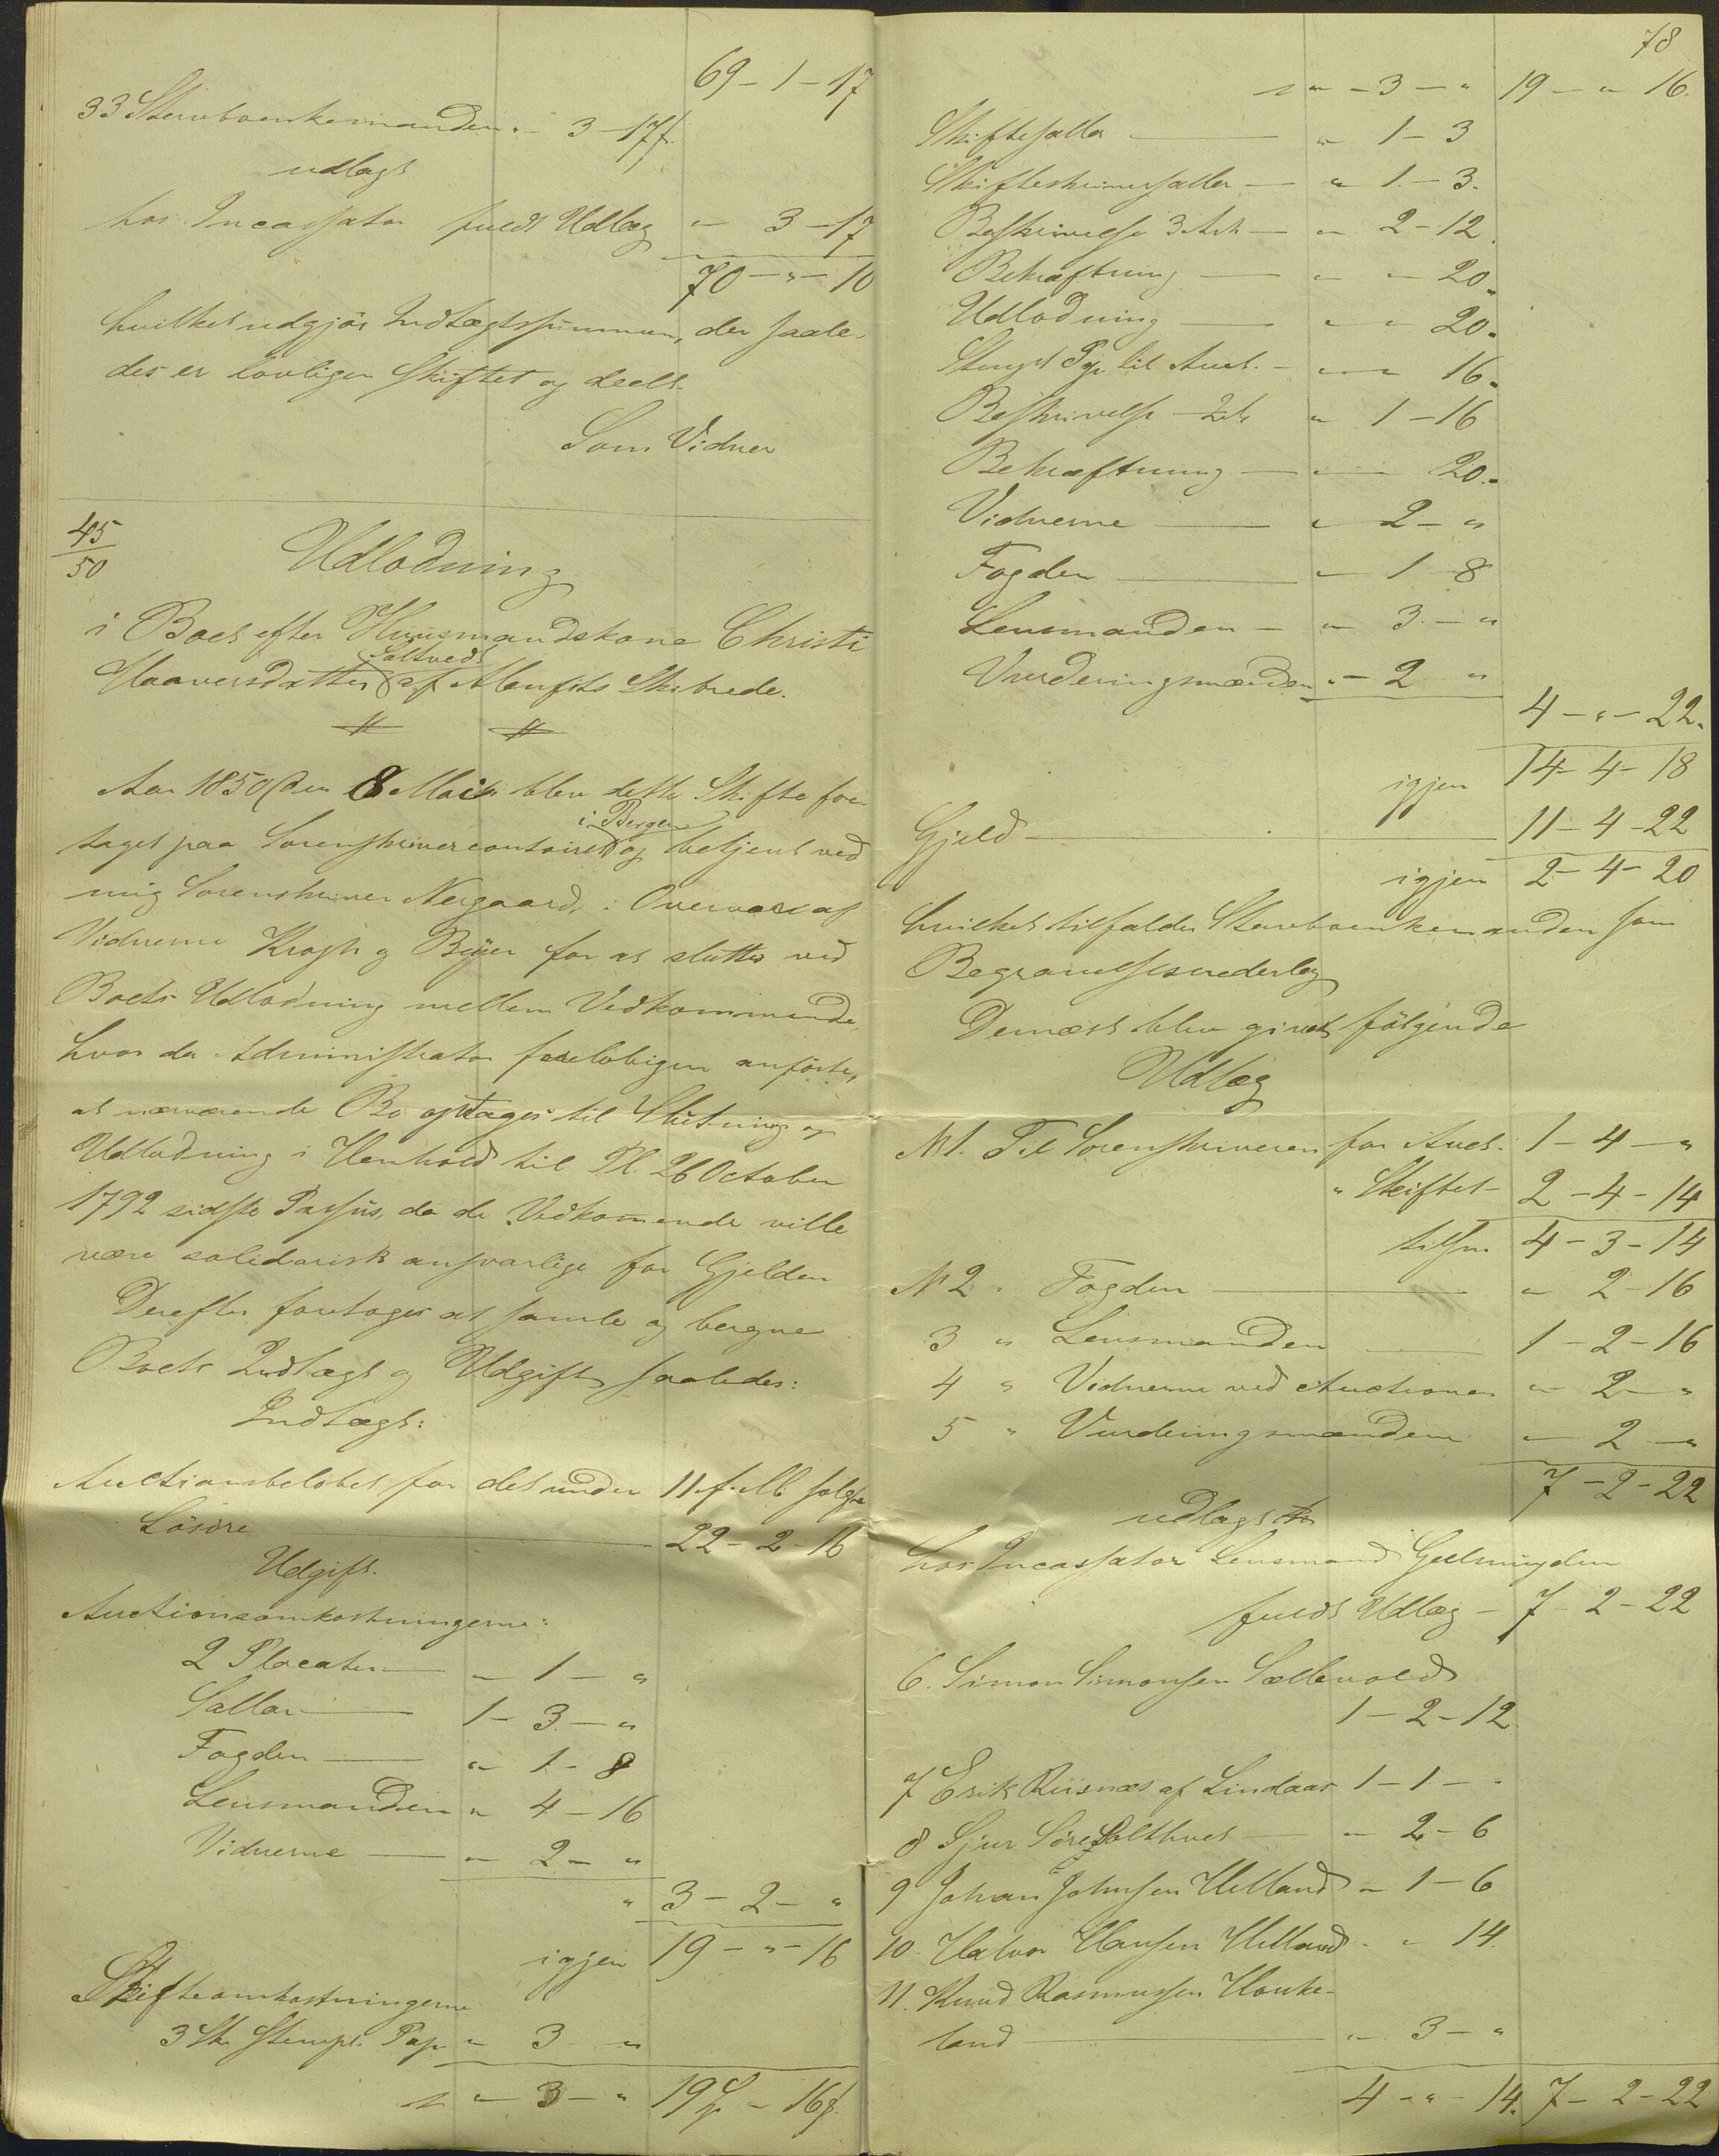 69 - 1 - 17
33 Stervboenkemanden " - 3 - 17 f.
udlagt
hos Incassator fuldt Udlæg " - 3 - 17
70 - " - 10
hvilket udgjør Indtægtssummen, der saale-
des er lovligen skiftet og deelt.
Som Vidner
45
50
Udlodning
i Boet efter Huusmandskone Christi
Haaversdatter Saltvedt af Alenfits Skibrede.
Aar 1850 den 8 Mai blev dette Skifte fore-
taget paa Sorenskrivercontoiret i Bergen og betjent ved
mig Sorenskriver Nergaard, i Overvær af
Vidnerne Krogh og Beyer for at sluttes ved
Boets Udlodning mellem Vedkommende,
hvor da Administrator foreløbigen anførte,
at nærværende Bo optages til Slutning og
Udlodning i Henhold til Pl 26 October
1792 sidste Passus, da de Vedkommende ville
være solidarisk ansvarlige for Gjelden
Derefter foretoges at samle og beregne
Boets Indtægt og Udgift saaledes:
Indtægt:
Auctionsbeløbet for det under 11 f. M. solgte
Løsøre 22 - 2 - 16
Udgift.
Auctionsomkostningerne:
2 Placater " - 1 - "
Sallar 1 - 3 - "
Fogden " 1 - 8
Lensmanden " 4 - 16
Vidnerne " - 2 - "
" 3 - 2 - "
igjen 19 - " - 16
Skifteomkostningerne
3 Stk Stempl. Pap " 3 "
" - 3 - " 19 - 16
78
" - 3 - " 19 - " - 16.
Skiftesallar " 1 - 3
Skifteskriversallar " 1 - 3.
Beskrivelse 3 Ark " 2 - 12.
Bekræftning " - 20.
Udlodning " " 20.
Stempl Pap til Auct. " - " 16.
Beskrivelse 2 Ark " 1 - 16
Bekræftning " 20.
Vidnerne " 2 - "
Fogden " 1 8
Lensmanden " 3. - "
Vurderingsmænden " - 2 "
4 - " - 22.
igjen 14 - 4 - 18
Gjeld 11 - 4 - 22
igjen 2 - 4 - 20
hvilket tilfalder Stervboenkemanden som
Begravelsesvederlag
Dernæst blev givet følgende
Udlæg
N 1. Til Sorenskriveren for Auct. 1 - 4 - "
" Skiftet - 2 - 4 - 14
tilsm 4 - 3 - 14
N 2 " Fogden " 2 - 16
3 " Lensmanden 1 - 2 - 16
4 " Vidnerne ved Auctionen " 2 - "
5 " Vurderingsmændene " 2 - "
7 - 2 - 22
udlagt
hos Incassator Lensmand
fuldt Udlæg - 7 - 2 - 22
6. Simon Simonsen Sællevold
1 - 2 - 12
7 Erik Riisnæs af Lindaas 1 - 1 - "
8 Sjur Søre " 2 - 6
9 Johan Johnsen Helland " 1 - 6
10. Halvor Hansen Helland " " 14.
11. Knud Rasmussen Houke-
land " 3 - "
4 - " - 14. 7 - 2 - 22